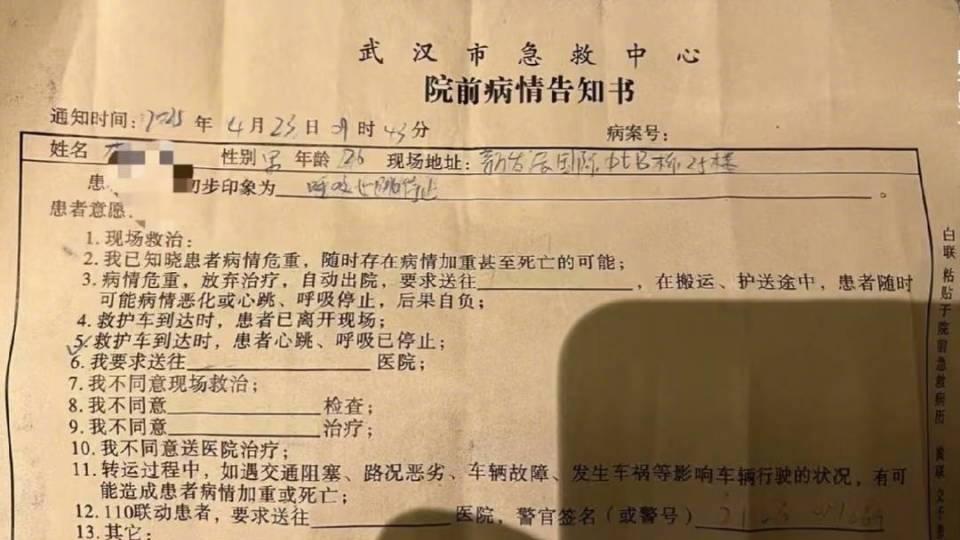 武汉市急救中心
院前病情告知书
通知时间：2025年4月23日 时43分 病案号：
姓名 性别 男 年龄 26 现场地址：新发展国际 栋25楼
患 初步印象为 呼吸心跳停止。
患者意愿：
1. 现场救治：
2. 我已知晓患者病情危重，随时存在病情加重甚至死亡的可能；
3. 病情危重，放弃治疗，自动出院，要求送往＿＿＿＿，在搬运、护送途中，患者随时
可能病情恶化或心跳、呼吸停止，后果自负；
4. 救护车到达时，患者已离开现场；
5. 救护车到达时，患者心跳、呼吸已停止；
6. 我要求送往＿＿＿＿医院；
7. 我不同意现场救治；
8. 我不同意＿＿＿＿检查；
9. 我不同意＿＿＿＿治疗；
10. 我不同意送医院治疗；
11. 转运过程中，如遇交通阻塞、路况恶劣、车辆故障、发生车祸等影响车辆行驶的状况，有可
能造成患者病情加重或死亡；
12. 110联动患者，要求送往＿＿＿＿医院，警官签名（或警号）
13. 其它：
白联 粘贴于院前急救病历